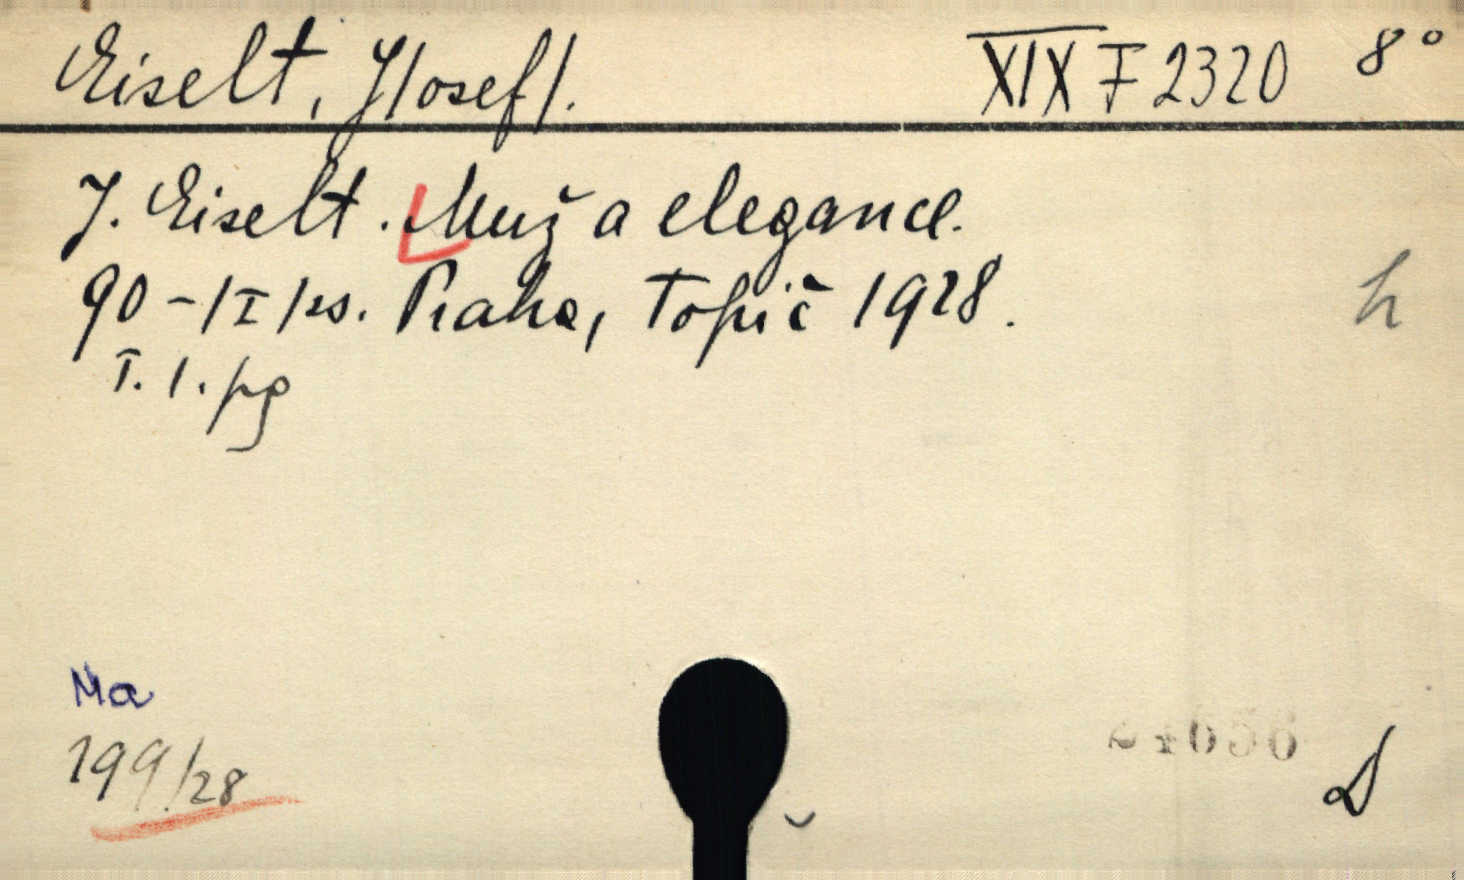 Eiselt, J/osef/. XIX F 2320 8°
J. Eiselt. Muž a elegance.
90 - /I/ s. Praha, Topič 1928.
I. 1. pg
h
Ma
199/28
24656